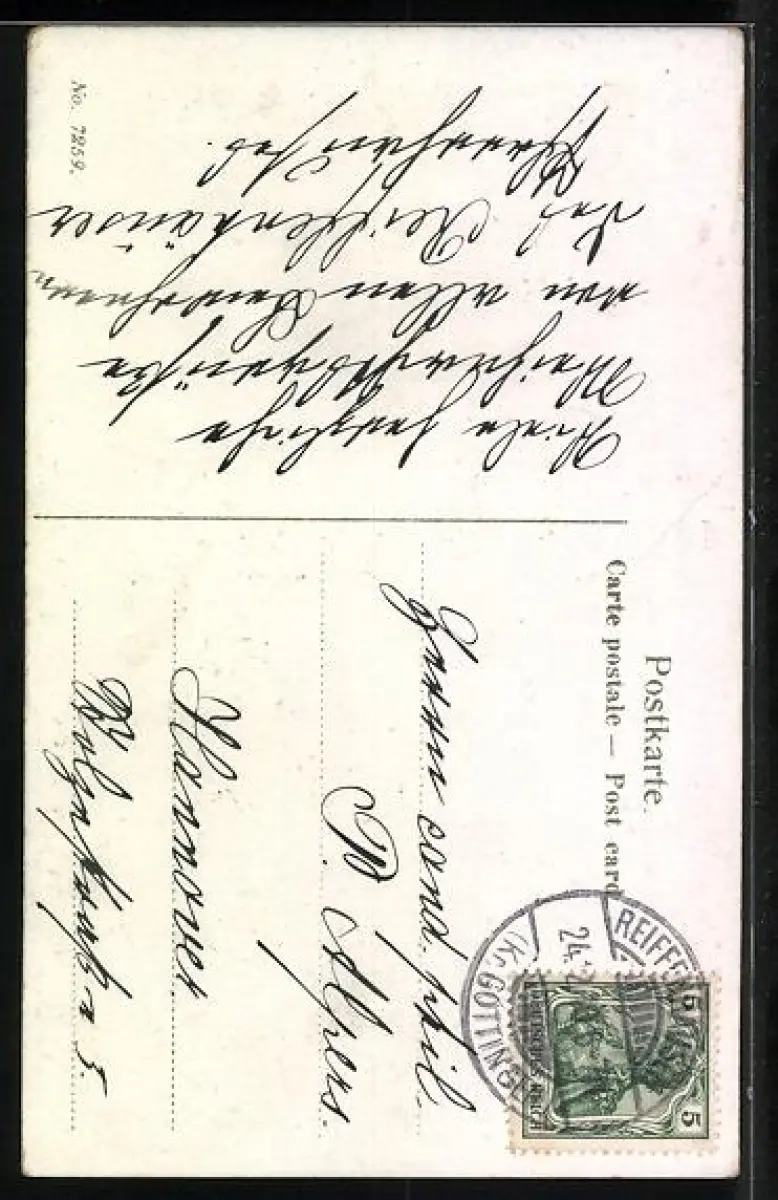 No. 7259.
Viele herzliche
Weihnachtsgrüße
von allen Bewohnern
des Reiffenhäuser
Pfarrhauses.
Postkarte.
Carte postale — Post card
REIFFENHAUSEN
24.12
(Kr. GÖTTINGEN)
5 5
DEUTSCHES REICH
Herrn cand. phil.
P. Alpers.
Hannover.
5.